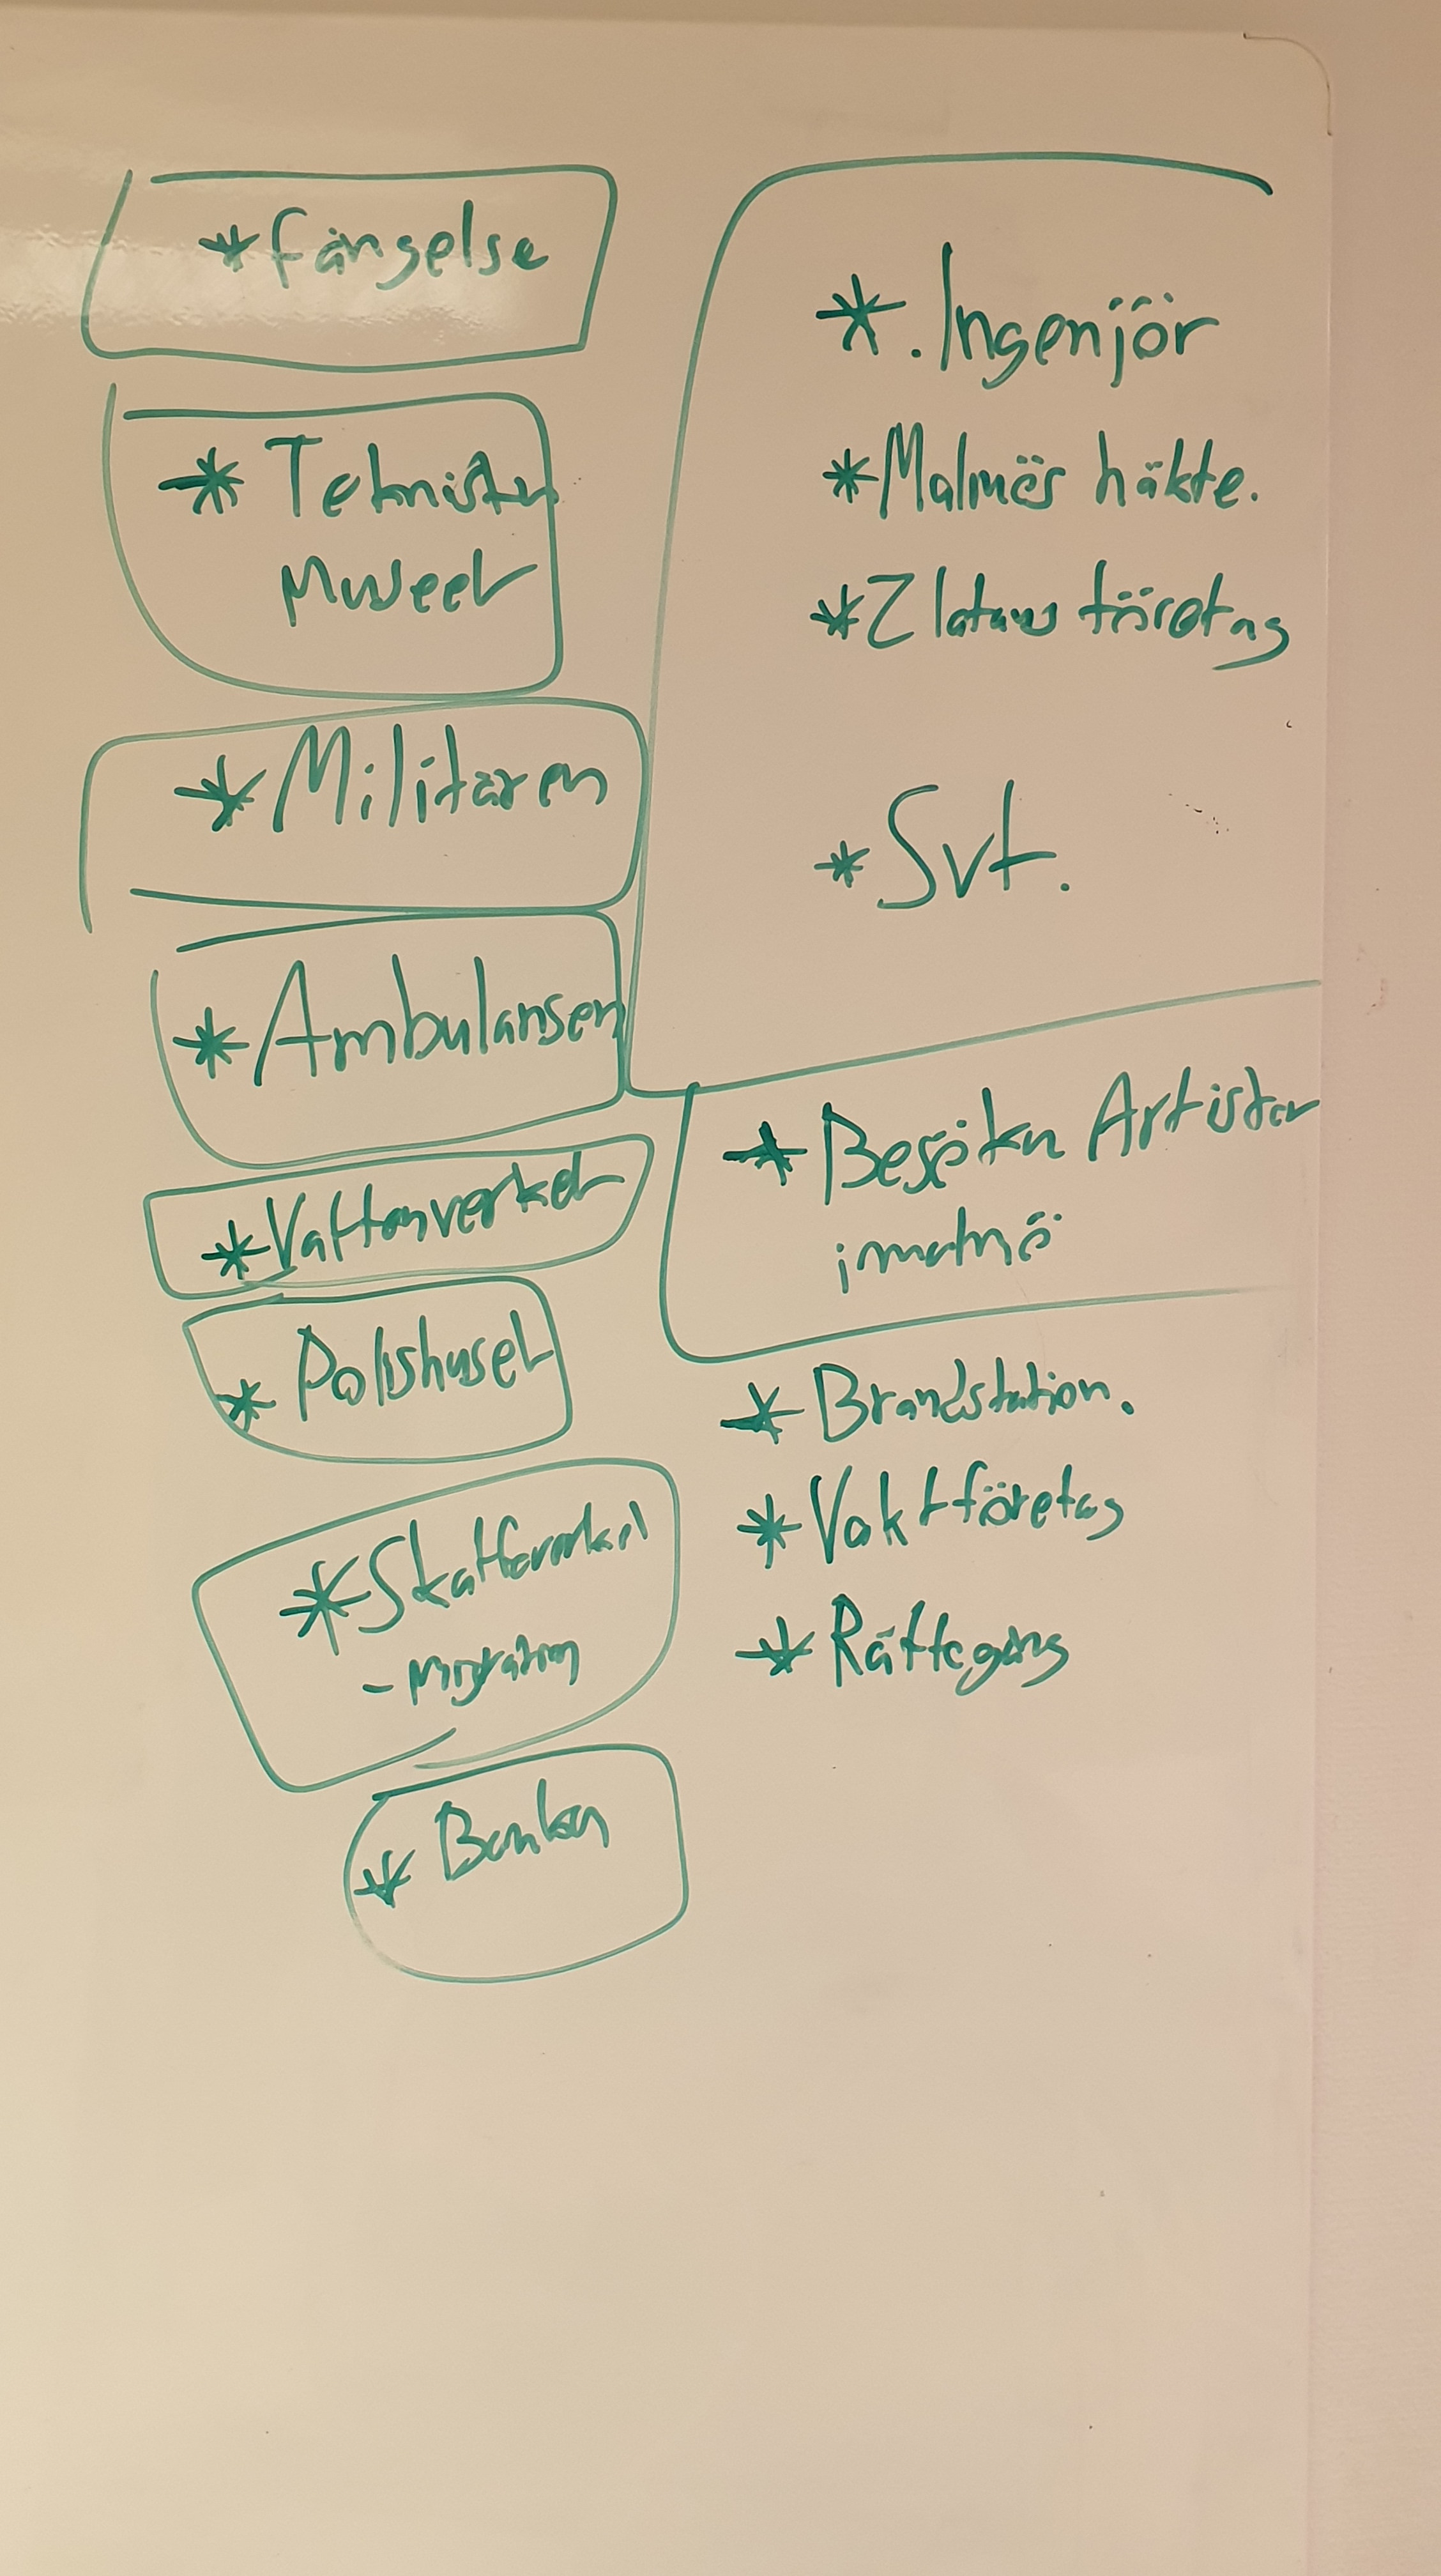 * fängelse
* Tekniska
Museet
* Militären
* Ambulansen
* Vattenverket
* Polishuset
* Skatteverket
- Migration
* Banken
* . Ingenjör
* Malmös häkte.
* Zlatans företag
* Svt.
* Besöka Artister
i malmö
* Brandstation.
* Vaktföretag
* Rättegång